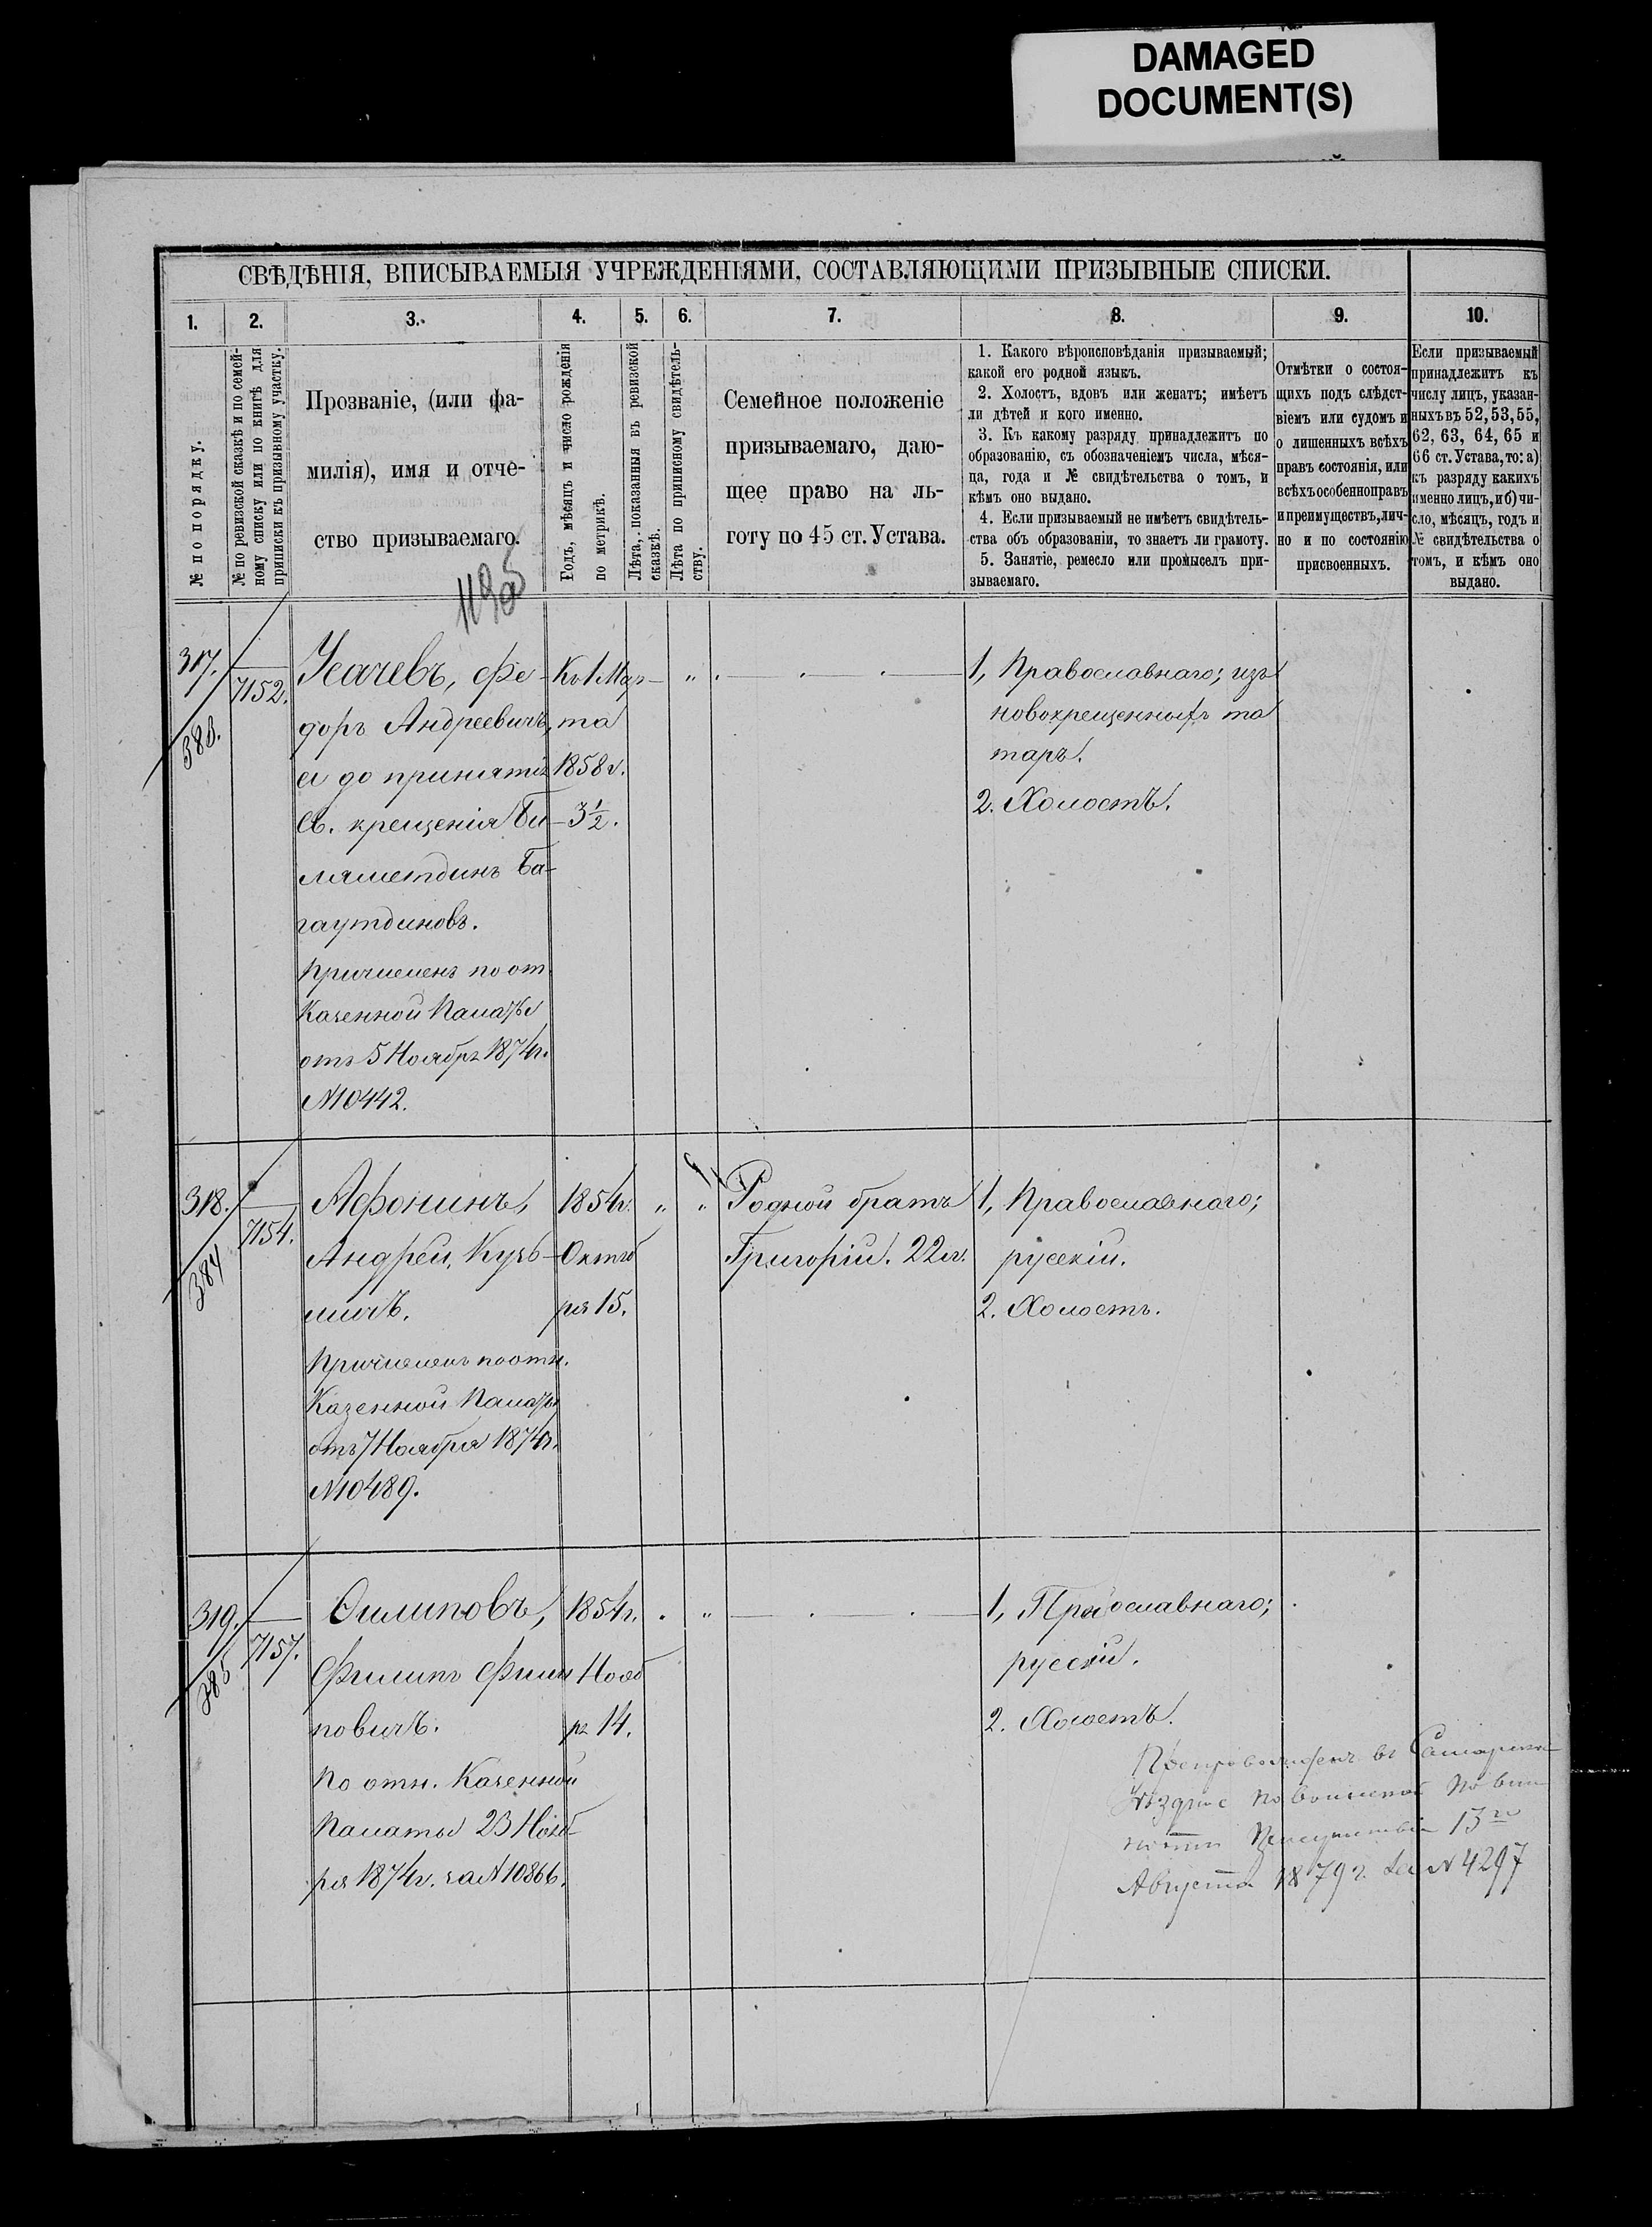 DAMAGED
DOCUMENT(S)
СВѢДѢНІЯ, ВПИСЫВАЕМЫЯ УЧРЕЖДЕНІЯМИ, СОСТАВЛЯЮЩИМИ ПРИЗЫВНЫЕ СПИСКИ.
1. 2. 3. 4. 5. 6. 7. 8. 9. 10.
№ по порядку.
№ по ревизской сказкѣ и по семей-
ному списку или по книгѣ для
приписки къ призывному участку.
Прозваніе, (или фа-
милія), имя и отче-
ство призываемаго.
Годъ, мѣсяцъ и число рожденія
по метрикѣ.
Лѣта, показанныя въ ревизской
сказкѣ.
Лѣта по приписному свидѣтель-
ству.
Семейное положеніе
призываемаго, даю-
щее право на ль-
готу по 45 ст. Устава.
1. Какого вѣроисповѣданія призываемый;
какой его родной языкъ.
2. Холостъ, вдовъ или женатъ; имѣетъ
ли дѣтей и кого именно.
3. Къ какому разряду принадлежитъ по
образованію, съ обозначеніемъ числа, мѣся-
ца, года и № свидѣтельства о томъ, и
кѣмъ оно выдано.
4. Если призываемый не имѣетъ свидѣтель-
ства объ образованіи, то знаетъ ли грамоту.
5. Занятіе, ремесло или промыселъ при-
зываемаго.
Отмѣтки о состоя-
щихъ подъ слѣдст-
віемъ или судомъ и
о лишенныхъ всѣхъ
правъ состоянія, или
всѣхъ особенно правъ
и преимуществъ, лич-
но и по состоянію
присвоенныхъ.
Если призываемый
принадлежитъ къ
числу лицъ, указан-
ныхъ въ 52, 53, 55,
62, 63, 64, 65 и
66 ст. Устава, то: а)
къ разряду какихъ
именно лицъ, и б) чи-
сло, мѣсяцъ, годъ и
№ свидѣтельства о
томъ, и кѣмъ оно
выдано.
317.
383.
7152.
Усачевъ, Фе-
доръ Андреевичъ,
а до принятія
Св. крещенія Би-
ляметдинъ Ба-
гаутдиновъ.
Причисленъ по от.
Казенной Палаты
отъ 5 Ноябр. 1874 г.
№ 10442.
Къ 1 Мар-
та
1858 г.
3½.
1, Православнаго; изъ
новокрещенныхъ та
таръ.
2. Холостъ.
318.
384
7154.
Афонинъ,
Андрей, Кузь-
мичъ.
Причисленъ по отн.
Казенной Палаты
отъ 7 Ноября 1874 г.
№ 10489.
1854 г.
Октяб
ря 15.
Родной братъ
Григорій. 22 л.
1, Православнаго;
русскій.
2. Холостъ.
319.
385
7157.
Ѳилиповъ,
Филипъ Фили
повичъ.
По отн. Казенной
Палаты 23 Нояб-
ря 1874 г. за № 10866.
1854 г.
Нояб
р. 14.
1, Православнаго;
русскій.
2. Холостъ.
Препровожденъ въ Самарское
Уѣздное по воинской повин
ности Присутствіе 13го
Августа 1879 г. за № 4297